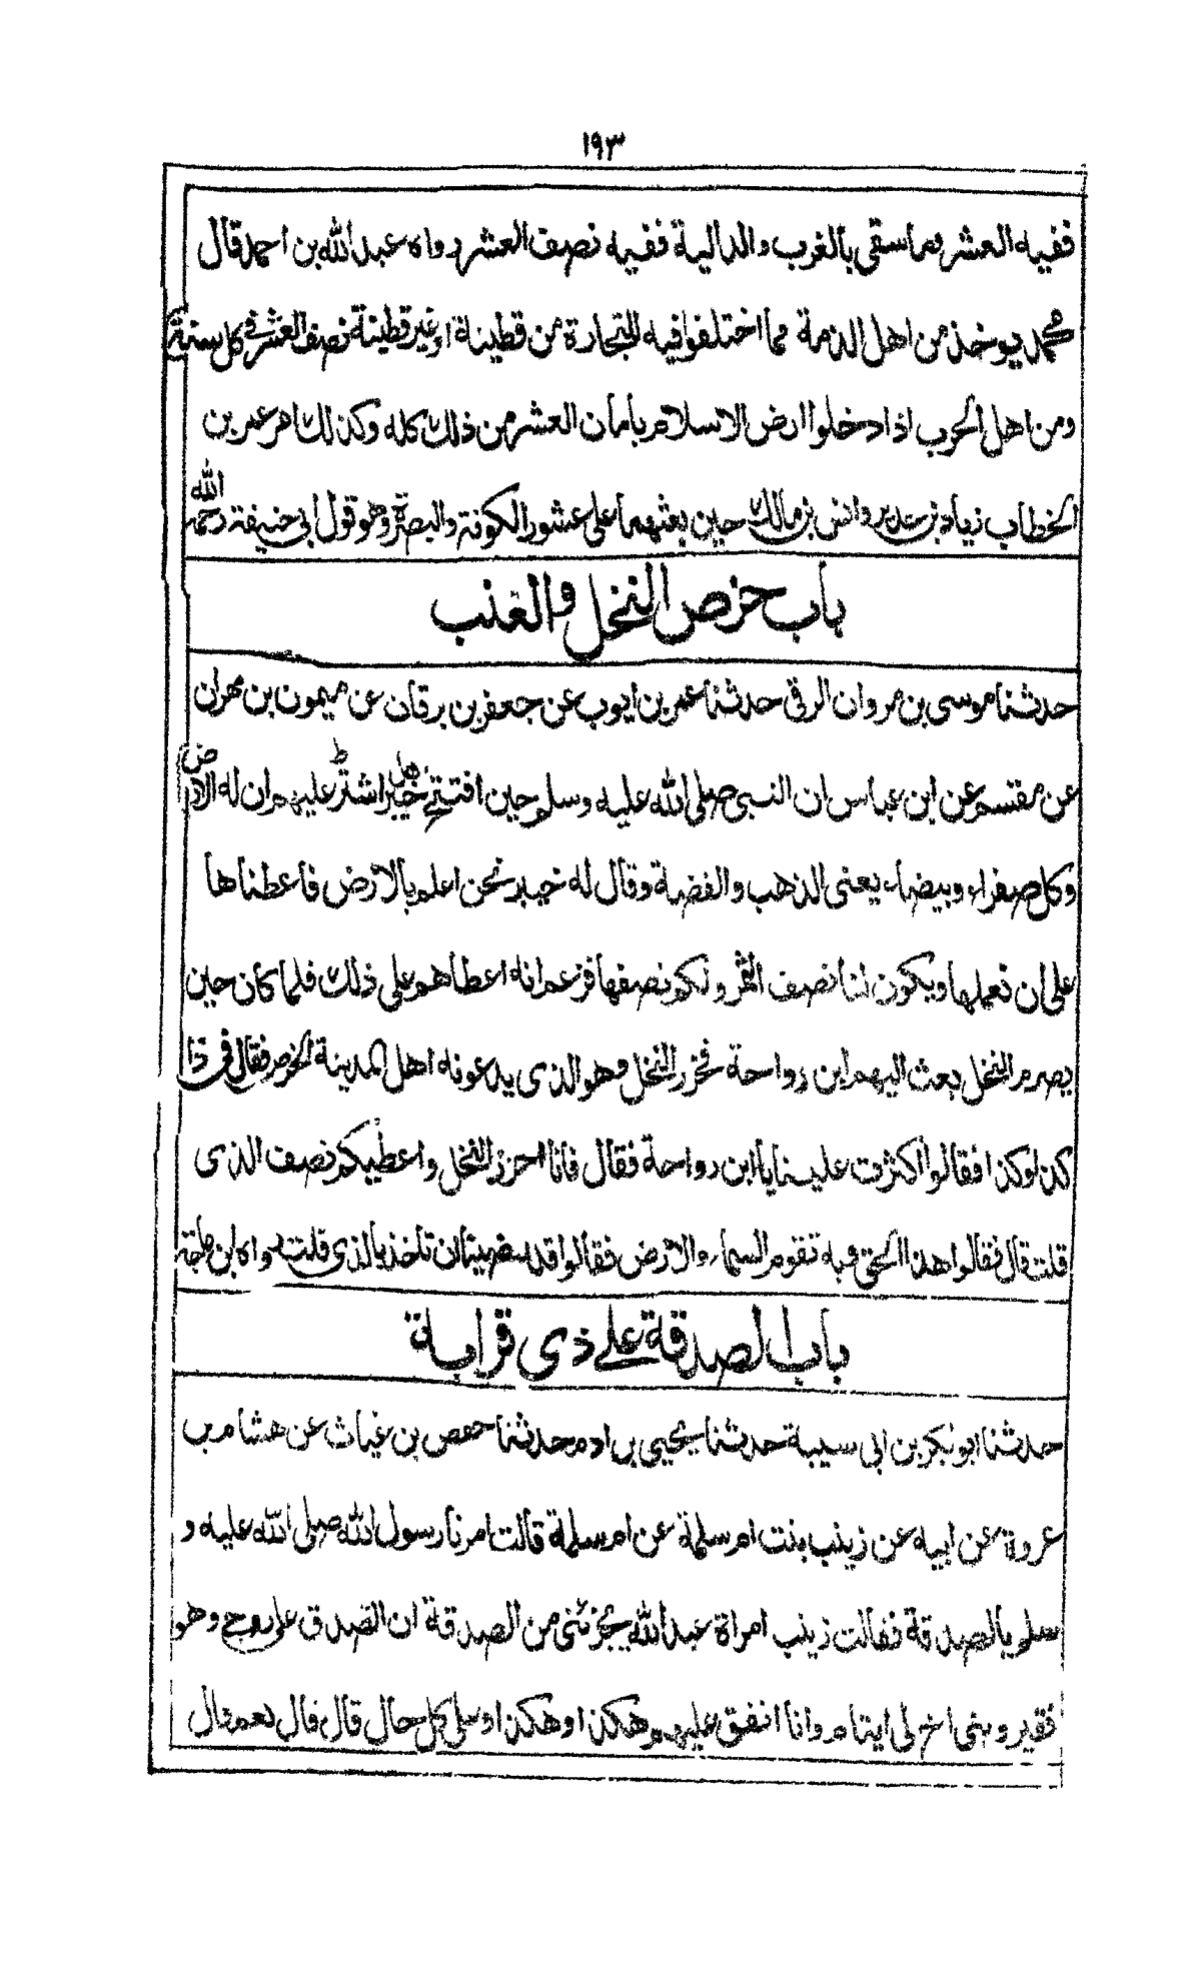 ١٩٣
ففيه العشر وما سقى بالغرب والدالية ففيه نصف العشر رواه عبد الله بن احمد قال
محمد يوخذ من اهل الذمة مما اختلفوا فيه للتجارة من قطينة او غير قطينة نصف العشر فى كل سنة
ومن اهل الحرب اذا دخلوا ارض الاسلام بأمان العشر من ذلك كله وكذلك امر عمر بن
الخطاب زياد بن حدير وانس بن مالك حين بعثهما على عشور الكوفة والبصرة وهو قول ابى حنيفة رحمه الله
باب خرص النخل والعنب
حدثنا موسى بن مروان الرقى حدثنا عمر بن ايوب عن جعفر بن برقان عن ميمون بن مهران
عن مقسم عن ابن عباس ان النبى صلى الله عليه وسلم حين افتتح خيبر اشترط عليهم ان له الارض
وكل صفراء وبيضاء يعنى الذهب والفضة وقال له خيبر نحن اعلم بالارض فاعطناها
على ان نعملها ويكون لنا نصف الثمر ولكم نصفها فزعم انه اعطاهم على ذلك فلما كان حين
يصرم النخل بعث اليهم ابن رواحة فحزر النخل وهو الذى يدعونه اهل المدينة الخرص فقال فى ذا
كذا وكذا فقالوا اكثرت علينا يا ابن رواحة فقال فانا احزر النخل واعطيكم نصف الذى
قلت قال فقالوا هذا الحق وبه تقوم السماء والارض فقالوا قد رضينا ان تاخذ بالذى قلت رواه ابن ماجة
باب الصدقة على ذى قرابة
حدثنا ابو بكر بن ابى سيبة حدثنا يحيى بن ادم حدثنا حفص بن غياث عن هشام بن
عروة عن ابيه عن زينب بنت ام سلمة عن ام سلمة قالت امرنا رسول الله صلى الله عليه و
سلم بالصدقة فقالت زينب امراة عبد الله يجزئنى من الصدقة ان اتصدق على زوجى وهو
فقير وبنى اخ لى ايتام وانا انفق عليهم هكذا وهكذا وعلى كل حال قال قال نعم وقال